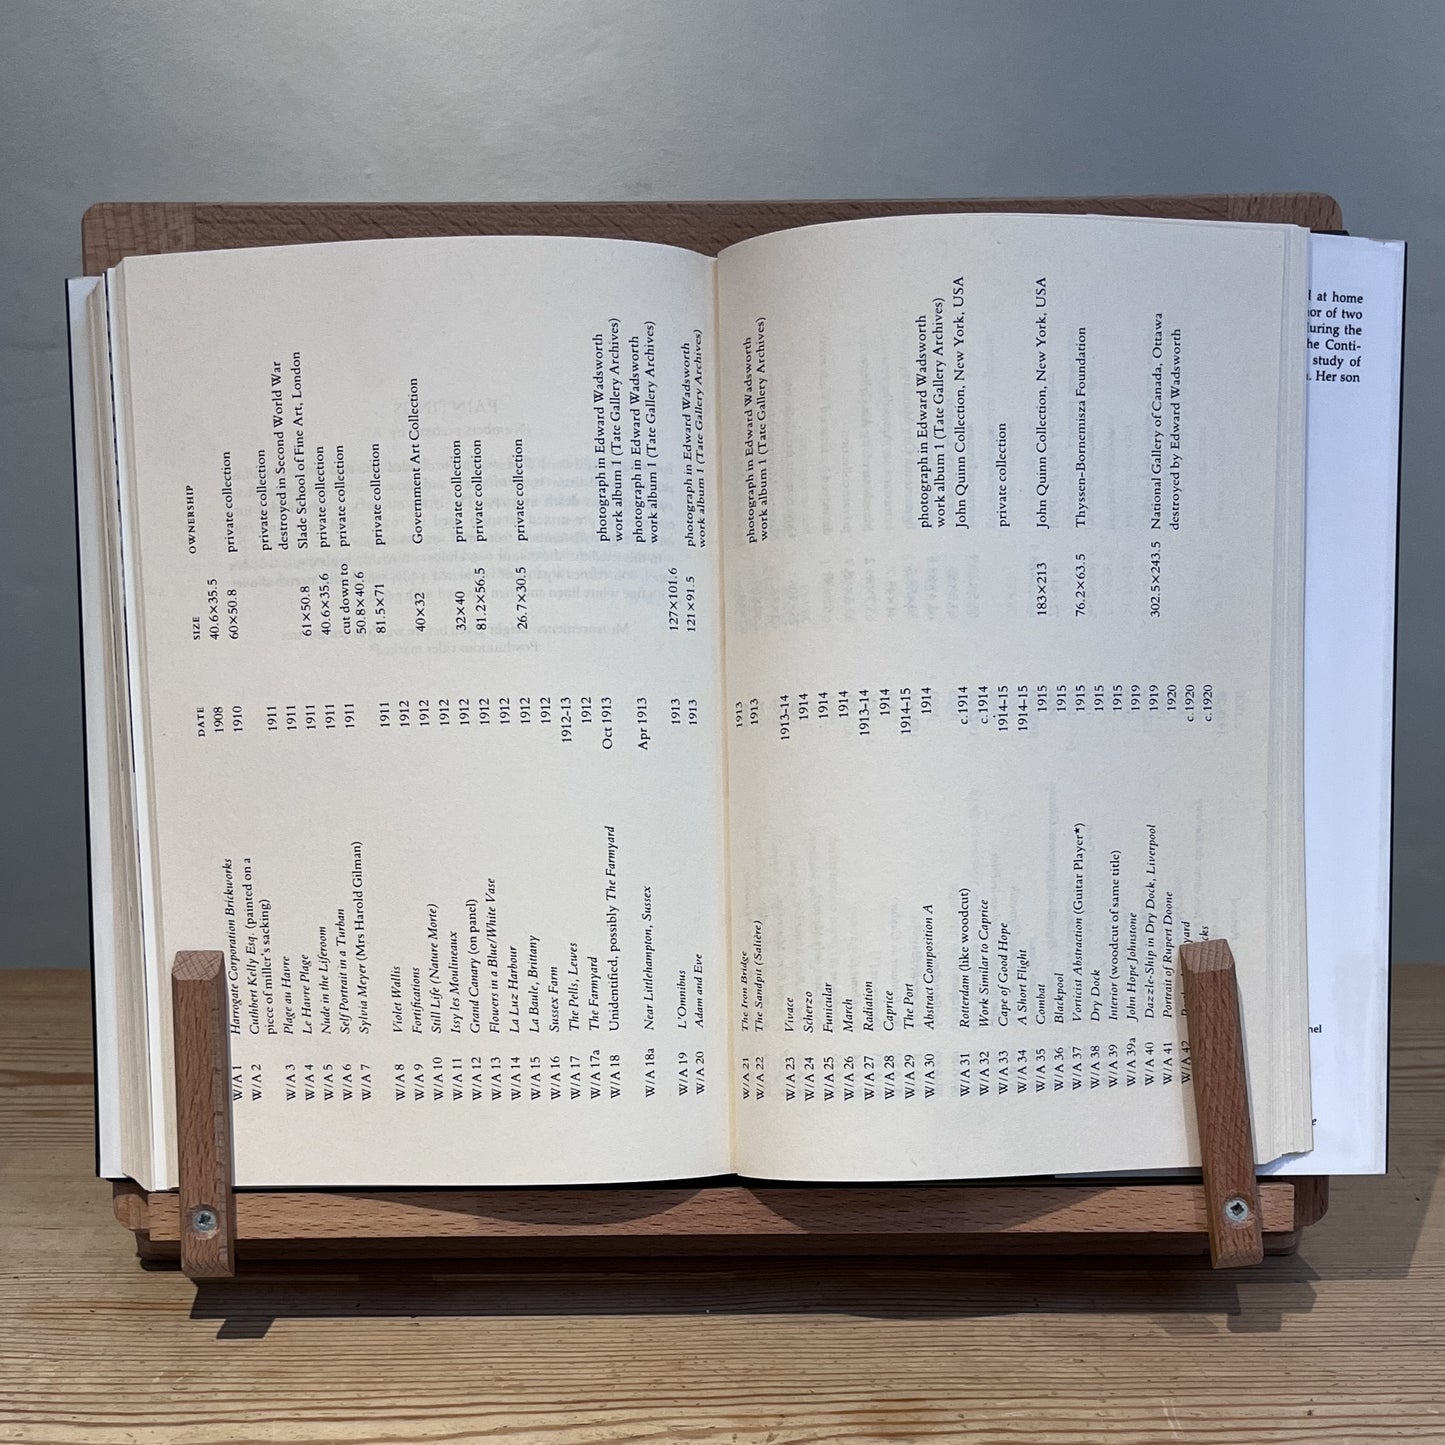 DATE SIZE OWNERSHIP
W/A 1 Harrogate Corporation Brickworks 1908 40.6×35.5
W/A 2 Cuthbert Kelly Esq. (painted on a 1910 60×50.8 private collection
piece of miller's sacking)
W/A 3 Plage au Havre 1911 private collection
W/A 4 Le Havre Plage 1911 destroyed in Second World War
W/A 5 Nude in the Liferoom 1911 61×50.8 Slade School of Fine Art, London
W/A 6 Self Portrait in a Turban 1911 40.6×35.6 private collection
W/A 7 Sylvia Meyer (Mrs Harold Gilman) 1911 cut down to private collection
50.8×40.6
W/A 8 Violet Wallis 1911 81.5×71 private collection
W/A 9 Fortifications 1912
W/A 10 Still Life (Nature Morte) 1912 40×32 Government Art Collection
W/A 11 Issy les Moulineaux 1912
W/A 12 Grand Canary (on panel) 1912 32×40 private collection
W/A 13 Flowers in a Blue/White Vase 1912 81.2×56.5 private collection
W/A 14 La Luz Harbour 1912
W/A 15 La Baule, Brittany 1912 26.7×30.5 private collection
W/A 16 Sussex Farm 1912
W/A 17 The Pells, Lewes 1912–13
W/A 17a The Farmyard 1912
W/A 18 Unidentified, possibly The Farmyard Oct 1913 photograph in Edward Wadsworth
work album 1 (Tate Gallery Archives)
W/A 18a Near Littlehampton, Sussex Apr 1913 photograph in Edward Wadsworth
work album 1 (Tate Gallery Archives)
W/A 19 L'Omnibus 1913 127×101.6
W/A 20 Adam and Eve 1913 121×91.5 photograph in Edward Wadsworth
work album 1 (Tate Gallery Archives)
W/A 21 The Iron Bridge 1913
W/A 22 The Sandpit (Salière) 1913 photograph in Edward Wadsworth
work album 1 (Tate Gallery Archives)
W/A 23 Vivace 1913–14
W/A 24 Scherzo 1914
W/A 25 Funicular 1914
W/A 26 March 1914
W/A 27 Radiation 1913–14
W/A 28 Caprice 1914
W/A 29 The Port 1914–15
W/A 30 Abstract Composition A 1914 photograph in Edward Wadsworth
work album 1 (Tate Gallery Archives)
W/A 31 Rotterdam (like woodcut) c.1914 John Quinn Collection, New York, USA
W/A 32 Work Similar to Caprice c.1914
W/A 33 Cape of Good Hope 1914–15 private collection
W/A 34 A Short Flight 1914–15
W/A 35 Combat 1915 183×213 John Quinn Collection, New York, USA
W/A 36 Blackpool 1915
W/A 37 Vorticist Abstraction (Guitar Player*) 1915 76.2×63.5 Thyssen-Bornemisza Foundation
W/A 38 Dry Dock 1915
W/A 39 Interior (woodcut of same title) 1915
W/A 39a John Hope Johnstone 1919
W/A 40 Dazzle-Ship in Dry Dock, Liverpool 1919 302.5×243.5 National Gallery of Canada, Ottawa
W/A 41 Portrait of Rupert Doone 1920 destroyed by Edward Wadsworth
W/A 42 c.1920
c.1920
at home
of two
during the
the Conti-
study of
Her son